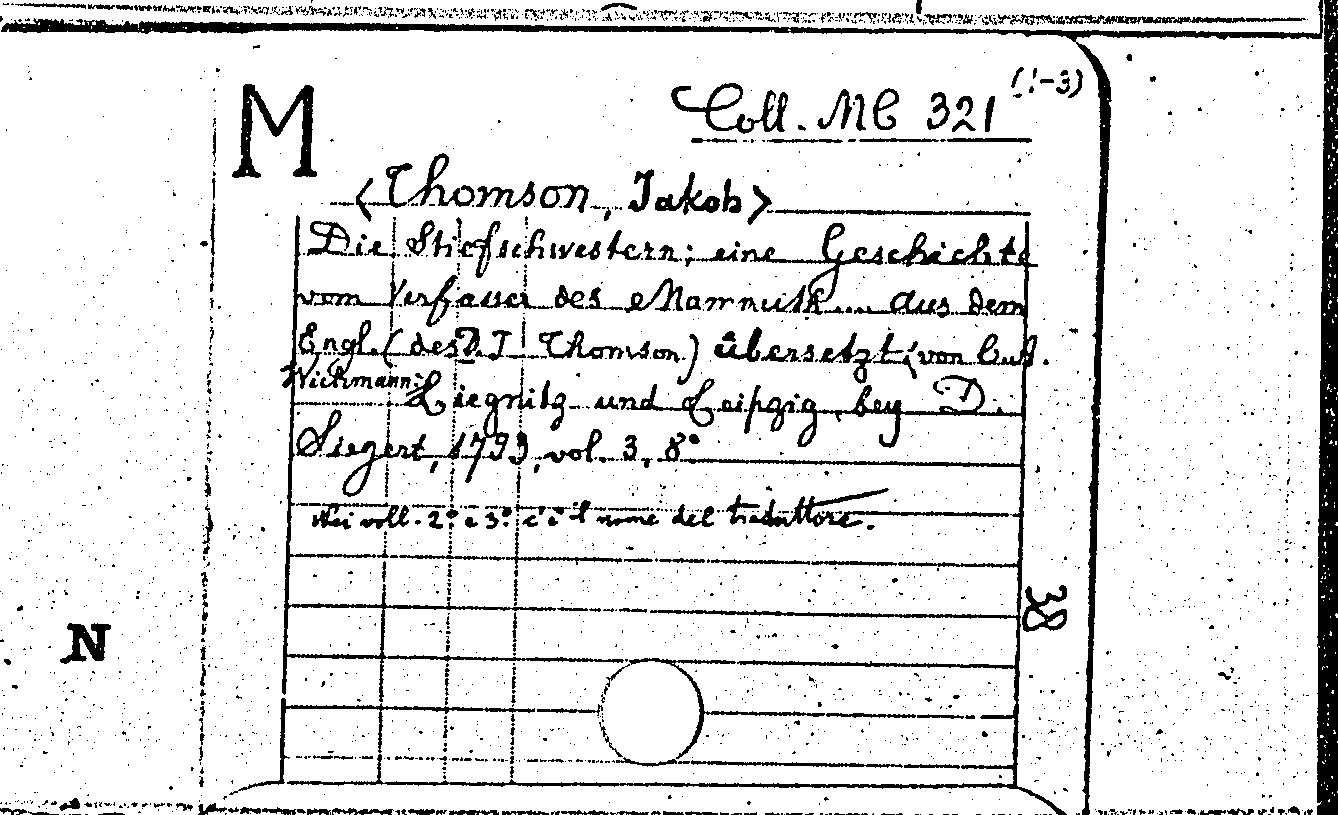 M
Coll. MC 321 (1-3)
<Thomson, Jakob>
Die Stiefschwestern; eine Geschichte
vom Verfasser des Mammuth.... aus dem
Engl. (des D. J Thomson) übersetzt (von
Wichmann:) Liegnitz und Leipzig, bey D.
Siegert, 1793, vol. 3, 8°
Nei voll. 2° e 3° c'è il nome del traduttore.
38
N